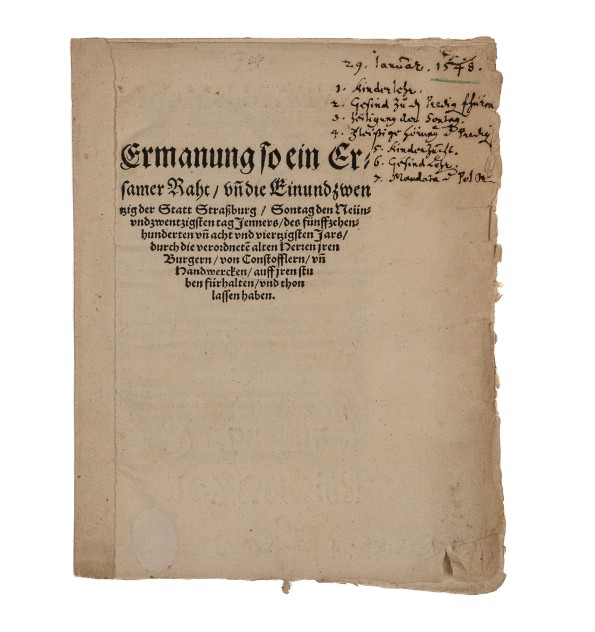 29. Januar. 1548.
1. Kinderlehr.
2. Gesind zu d Predig
3. Heiligung der Sontag.
4. Fleissige d Predig
5. Kinderzucht.
6. Gesind
7. Mandata
Ermanung so ein Er-
samer Raht / vn̄ die Einundzwen
tzig der Statt Straßburg / Sontag den Neün-
vndzwentzigsten tag Jenners / des fünffzehen-
hunderten vn̄ acht vnd viertzigsten Jars /
durch die verordnetē alten Herren jren
Burgern / von Constofflern / vn̄
Handwercken / auff jren stu
ben fürhalten / vnd thon
lassen haben.